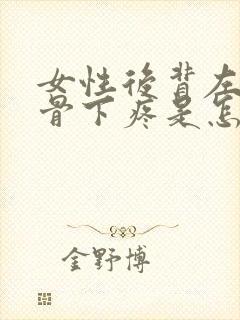 女性后背左
骨下疼是怎
金野博